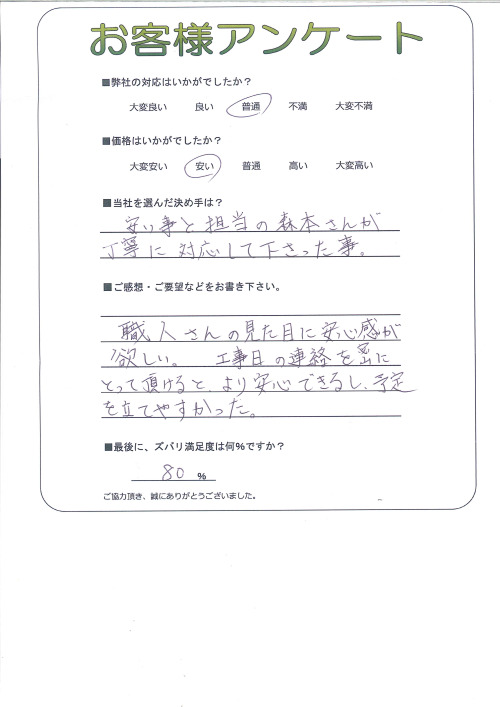 お客様アンケート
■弊社の対応はいかがでしたか？
大変良い 良い 普通 不満 大変不満
■価格はいかがでしたか？
大変安い 安い 普通 高い 大変高い
■当社を選んだ決め手は？
安い事と担当の森本さんが
丁寧に対応して下さった事。
■ご感想・ご要望などをお書き下さい。
職人さんの見た目に安心感が
欲しい。 工事日の連絡を密に
とって頂けると、より安心できるし、予定
を立てやすかった。
■最後に、ズバリ満足度は何%ですか？
80 %
ご協力頂き、誠にありがとうございました。